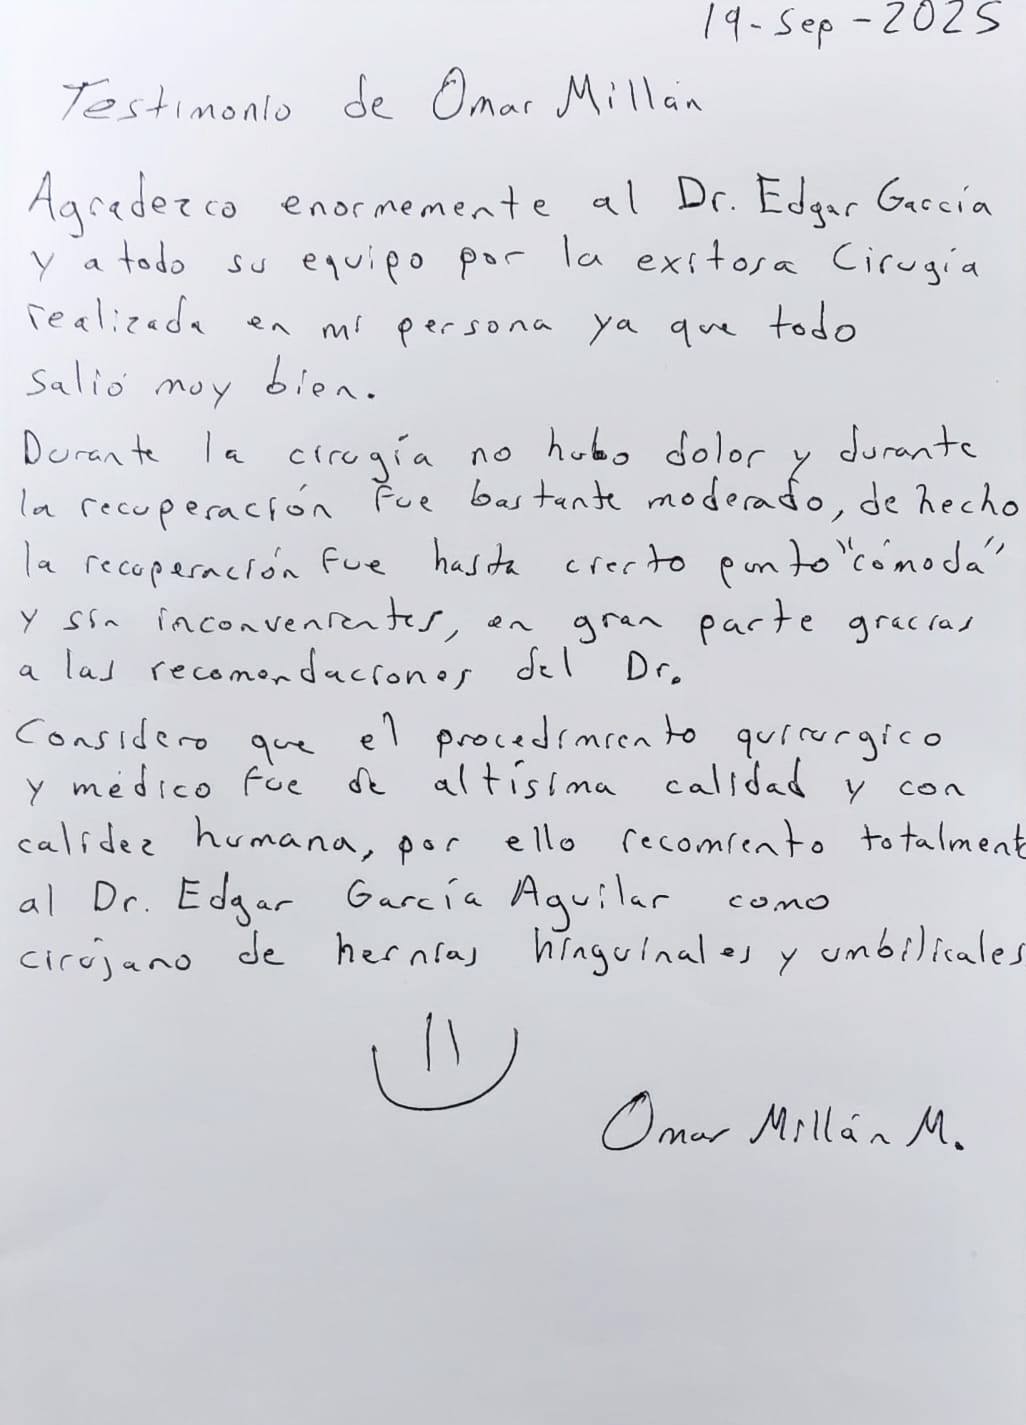 19-Sep-2025
Testimonio de Omar Millán
Agradezco enormemente al Dr. Edgar García
y a todo su equipo por la exitosa Cirugía
realizada en mi persona ya que todo
salió muy bien.
Durante la cirugía no hubo dolor y durante
la recuperación fue bastante moderado, de hecho
la recuperación fue hasta cierto punto "cómoda"
y sin inconvenientes, en gran parte gracias
a las recomendaciones del Dr.
Considero que el procedimiento quirurgico
y médico fue de altísima calidad y con
calidez humana, por ello recomiento totalment
al Dr. Edgar García Aguilar como
cirujano de hernias hinguinales y umbilicales
Omar Millán M.